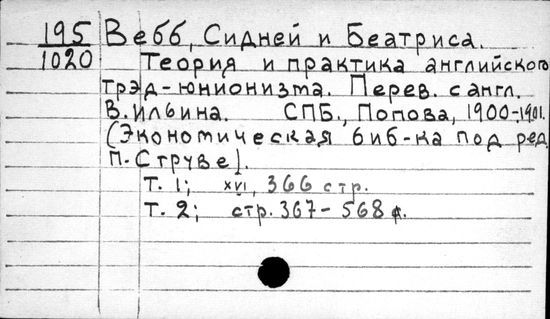 195 Вебб, Сидней и Беатриса.
1020 Теория и практика английского
трэд-юнионизма. Перев. с англ.
В. Ильина. СПБ., Попова, 1900-1901.
(Экономическая биб-ка под ред.
П. Струве).
Т. 1; XVI, 366 стр.
Т. 2; стр. 367-568